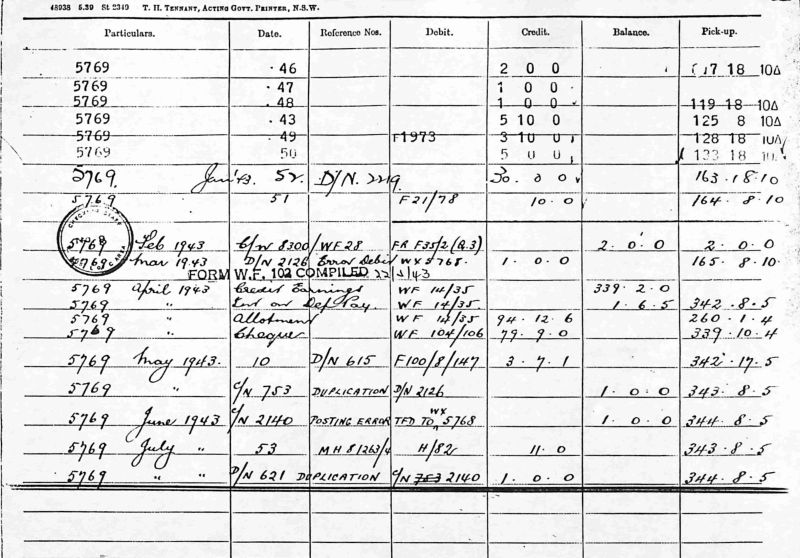 48938 5.39 St 2349 T. H. TENNANT, ACTING GOVT. PRINTER, N.S.W.
Particulars. Date. Reference Nos. Debit. Credit. Balance. Pick-up.
5769 . 46 2 0 0 117 18 10Δ
5769 . 47 1 0 0
5769 . 48 1 0 0 119 18 10Δ
5769 . 43 5 10 0 125 8 10Δ
5769 . 49 F1973 3 10 0 128 18 10Δ
5769 50 5 0 0 133 18 10.
5769. 52. D/N. 2219. 30. 0 0 163. 18. 10
5769. 51 F21/78 10. 0 164. 8. 10
5769 Feb 1943 C/N 8300/WF28 FR F35/2 (Q.3) 2. 0. 0 2. 0. 0
5769 Mar 1943 D/N 2126 Error Debit WX5768. 1. 0. 0 165. 8. 10.
FORM W.F. 102 COMPILED
5769 April 1943 Credit Earnings WF 14/35 339. 2. 0
5769. " Int on Def Pay. WF 14/35. 1. 6. 5 342. 8. 5
5769 " Allotment WF 14/35 94. 12. 6 260. 1. 4
5769 " Cheque WF 104/106 79. 9. 0 339. 10. 4
5769 May 1943. 10 D/N 615 F100/8/147 3. 7. 1 342. 17. 5
5769 " C/N 753 DUPLICATION D/N 2126 1. 0. 0 343. 8. 5
5769 June 1943 C/N 2140 POSTING ERROR TFD TO WX 5768 1. 0. 0 344. 8. 5
5769 July " 53 MH81263/4 H/82 11. 0 343. 8. 5
5769 " " D/N 621 DUPLICATION C/N 753 2140 1. 0. 0 344. 8. 5